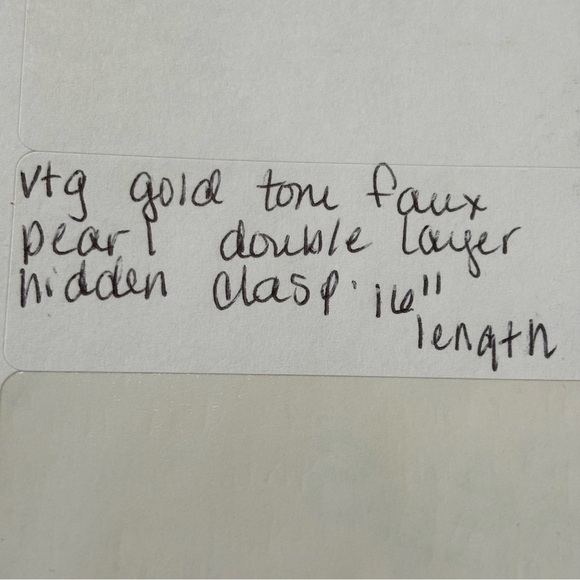 vtg gold tone faux
pearl double layer
hidden clasp. 16"
length